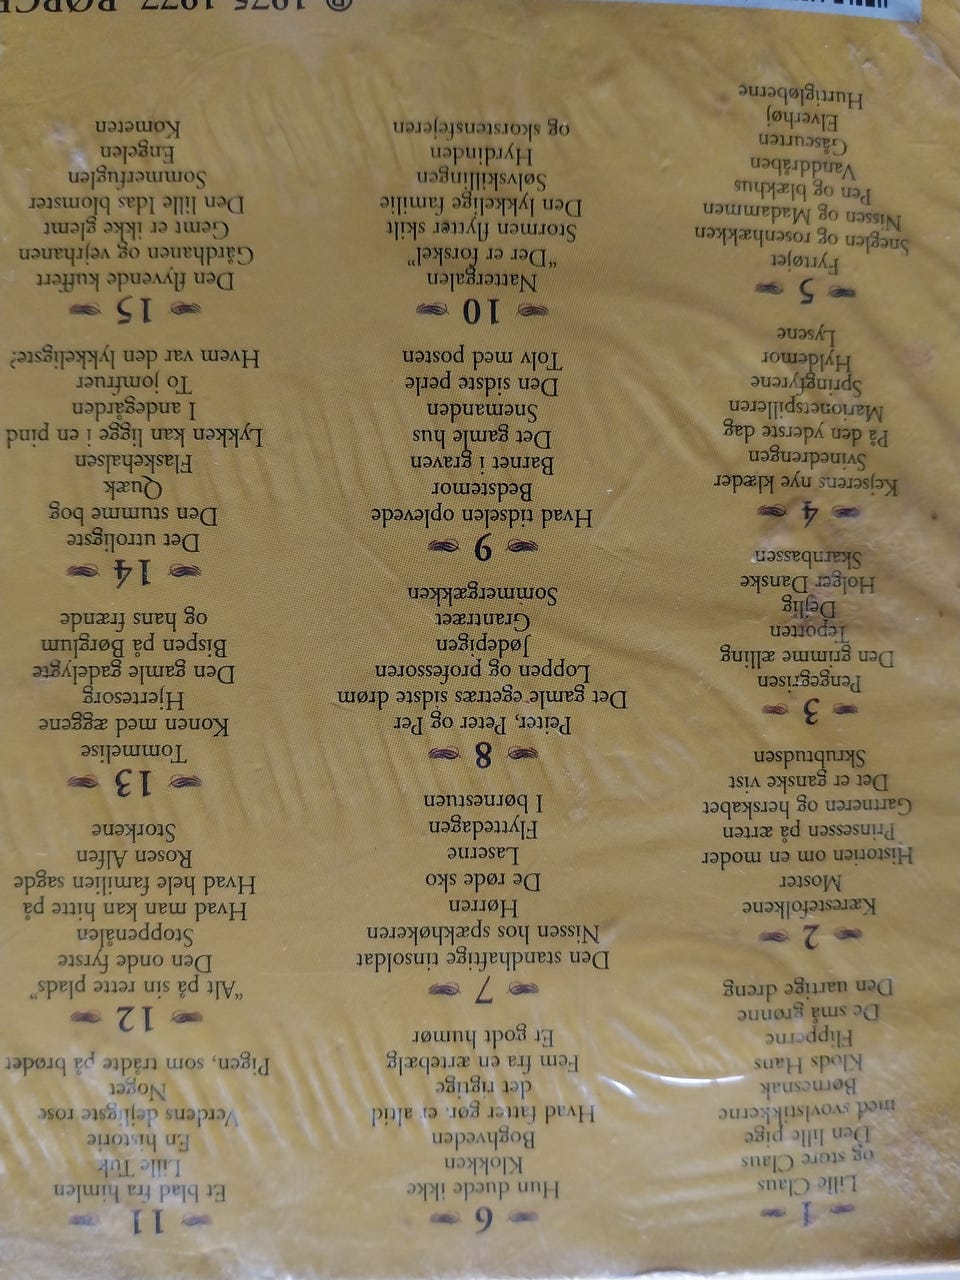 1
Lille Claus
og store Claus
Den lille pige
med svovlstikkerne
Børnesnak
Klods Hans
Flipperne
De små grønne
Den uartige dreng
2
Kærestefolkene
Moster
Historien om en moder
Prinsessen på ærten
Gartneren og herskabet
Det er ganske vist
Skrubtudsen
3
Pengegrisen
Den grimme ælling
Tepotten
Dejlig
Holger Danske
Skarnbassen
4
Kejserens nye klæder
Svinedrengen
På den yderste dag
Marionetspilleren
Springfyrene
Hyldemor
Lysene
5
Fyrtøjet
Sneglen og rosenhækken
Nissen og Madammen
Pen og blækhus
Vanddråben
Gåseurten
Elverhøj
Hurtigløberne
6
Hun duede ikke
Klokken
Boghveden
Hvad fatter gør, er altid
det rigtige
Fem fra en ærtebælg
Et godt humør
7
Den standhaftige tinsoldat
Nissen hos spækhøkeren
Hørren
De røde sko
Laserne
Flyttedagen
I børnestuen
8
Peiter, Peter og Per
Det gamle egetræs sidste drøm
Loppen og professoren
Jødepigen
Grantræet
Sommergækken
9
Hvad tidselen oplevede
Bedstemor
Barnet i graven
Det gamle hus
Snemanden
Den sidste perle
Tolv med posten
10
Nattergalen
"Der er forskel"
Stormen flytter skilt
Den lykkelige familie
Sølvskillingen
Hyrdinden
og skorstensfejeren
11
Et blad fra himlen
Lille Tuk
En historie
Verdens dejligste rose
Noget
Pigen, som trådte på brødet
12
"Alt på sin rette plads"
Den onde fyrste
Stoppenålen
Hvad man kan hitte på
Hvad hele familien sagde
Rosen Alfen
Storkene
13
Tommelise
Konen med æggene
Hjertesorg
Den gamle gadelygte
Bispen på Børglum
og hans frænde
14
Det utroligste
Den stumme bog
Quæk
Flaskehalsen
Lykken kan ligge i en pind
I andegården
To jomfruer
Hvem var den lykkeligste?
15
Den flyvende kuffert
Gårdhanen og vejrhanen
Gemt er ikke glemt
Den lille Idas blomster
Sommerfuglen
Engelen
Kometen
℗ 1975, 1977